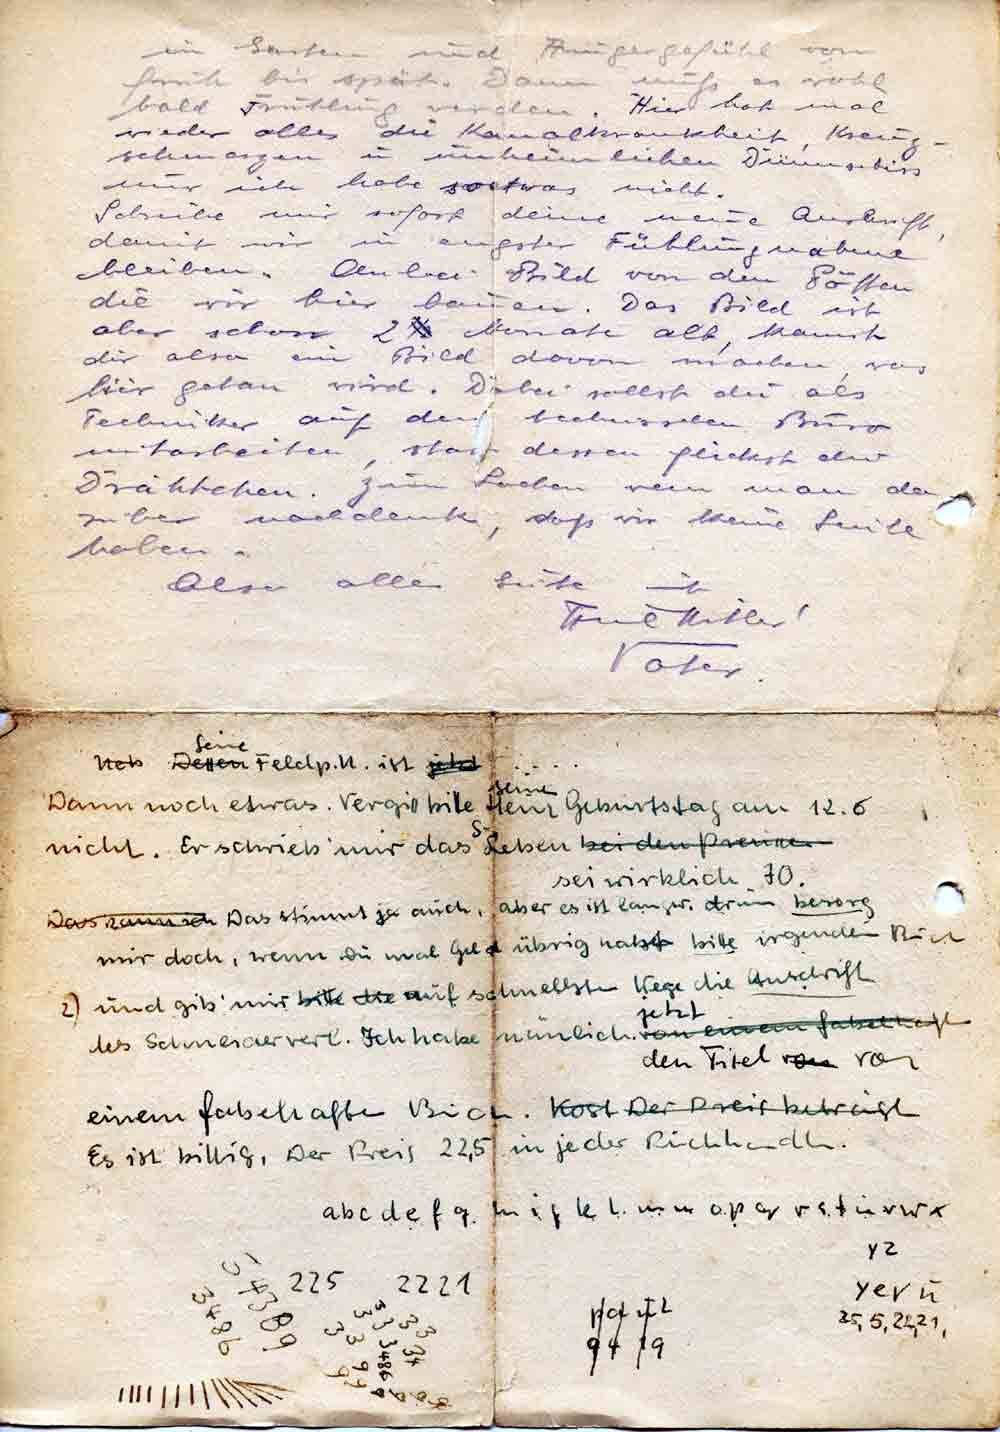 im Garten und Hungergefühl von
früh bis spät. Dann muß es wohl
bald Frühling werden. Hier hat mal
wieder alles die Kanalkrankheit,
schmerzen u unheimlichen Dünnschiss
nur ich habe sowas nicht.
Schreibe mir sofort deine neue Anschrift,
damit wir in engster Fühlungnahme
bleiben. Anbei Bild von den Pötten
die wir hier bauen. Das Bild ist
aber schon 2 Monate alt, kannst
dir also ein Bild davon machen, was
hier getan wird. Dabei sollst du als
Techniker auf dem technischen Büro
mitarbeiten, statt dessen flickst du
Drähtchen. Zum Lachen wenn man da
rüber nachdenkt, daß wir keine Leute
haben.
Also alles Gute
Heil Hitler!
Vater.
Deßen seine Feldp.N. ist jetzt .....
Dann noch etwas. Vergiß bitte seine Geburtstag am 12.6
nicht. Er schrieb mir das Leben bei den Preußen
sei wirklich 70.
Das stimmt ja auch, aber es ist langw. drum besorg
mir doch, wenn Du mal Geld übrig hast bitte irgendein Buch
2) und gib mir bitte die auf schnellsten Wege die Anschrift
des Schneiderverl. Ich habe nämlich jetzt von einem fabelhaft
den Titel von von
einem fabelhaften Buch. Kost Der Preis beträgt
Es ist billig, Der Preis 22,5 in jeder Buchhandl.
a b c d e f g h i j k l m n o p q r s t u v w x
y z
225 2221
y e v u
25, 5, 22, 21,
54389
3486
3486
94 19